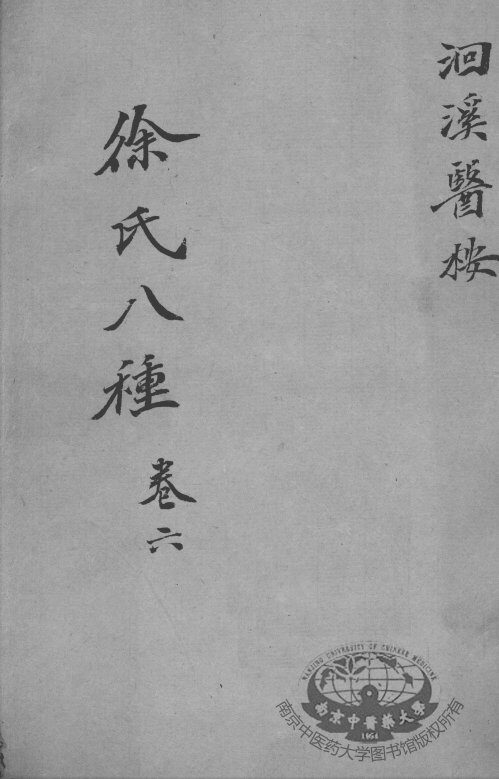 洄溪醫桉
徐氏八種
卷六
NANJING UNIVERSITY OF CHINESE MEDICINE
南京中醫藥大學
1954
南京中医药大学图书馆版权所有